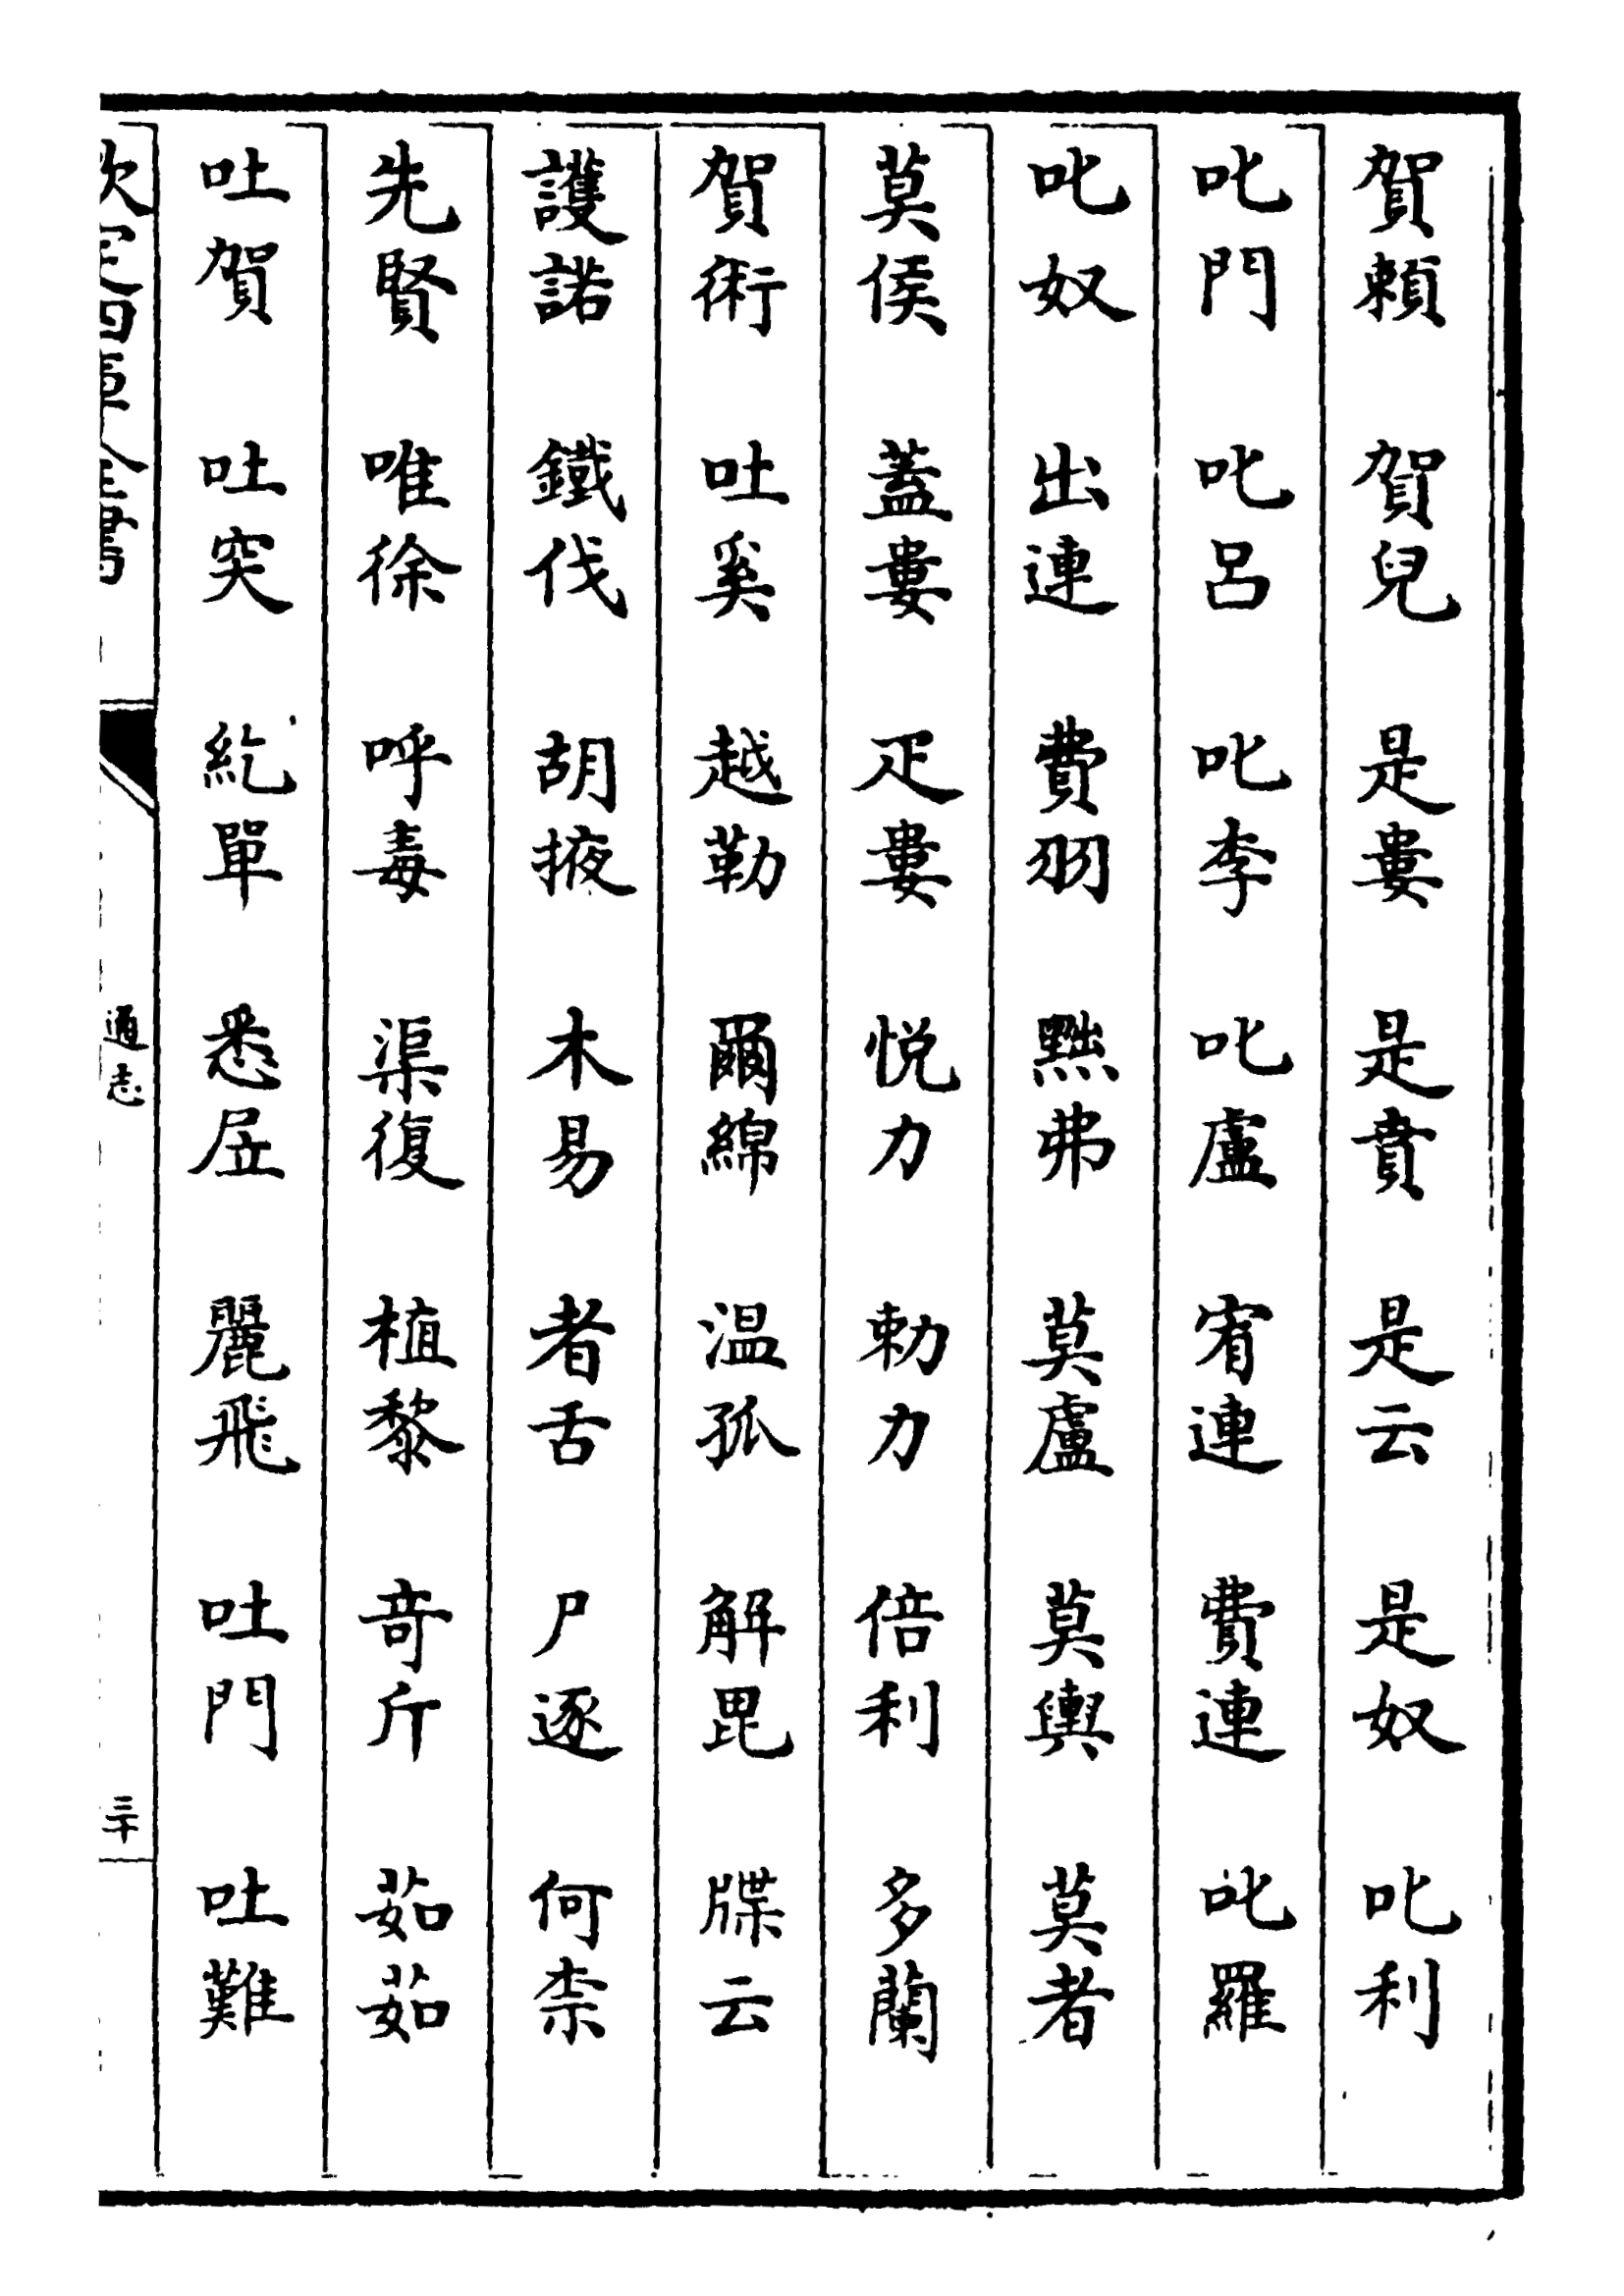 賀頼　賀兒　是婁　是賁　是云　是奴　叱利
叱門　叱呂　叱李　叱盧　宥連　費連　叱羅
叱奴　出連　費羽　黜弗　莫盧　莫輿　莫者
莫侯　蓋婁　疋婁　悦力　勅力　倍利　多蘭
賀術　吐奚　越勒　爾綿　温孤　解毘　牒云
護諾　鐵伐　胡掖　木易　者舌　尸逐　何柰
先賢　唯徐　呼毒　渠復　植黎　竒斤　茹茹
吐賀　吐突　紇單　悉居　麗飛　吐門　吐難
欽定四庫全書　通志　三十